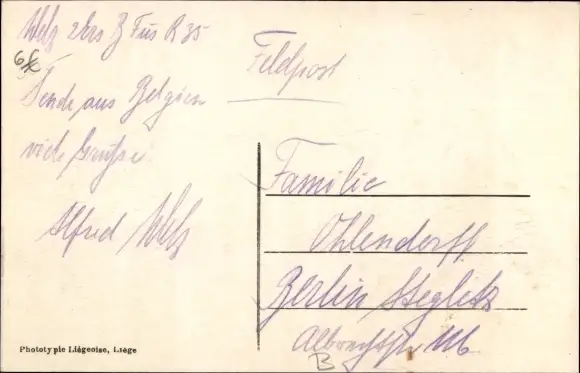 Welz 2 Ers Füs R 35
Feldpost
Sende aus Belgien
viele Grüsse
Alfred Welz
Familie
Ohlendorff
Berlin Steglitz
Albrechtstr
B
Phototypie Liégeoise, Liége